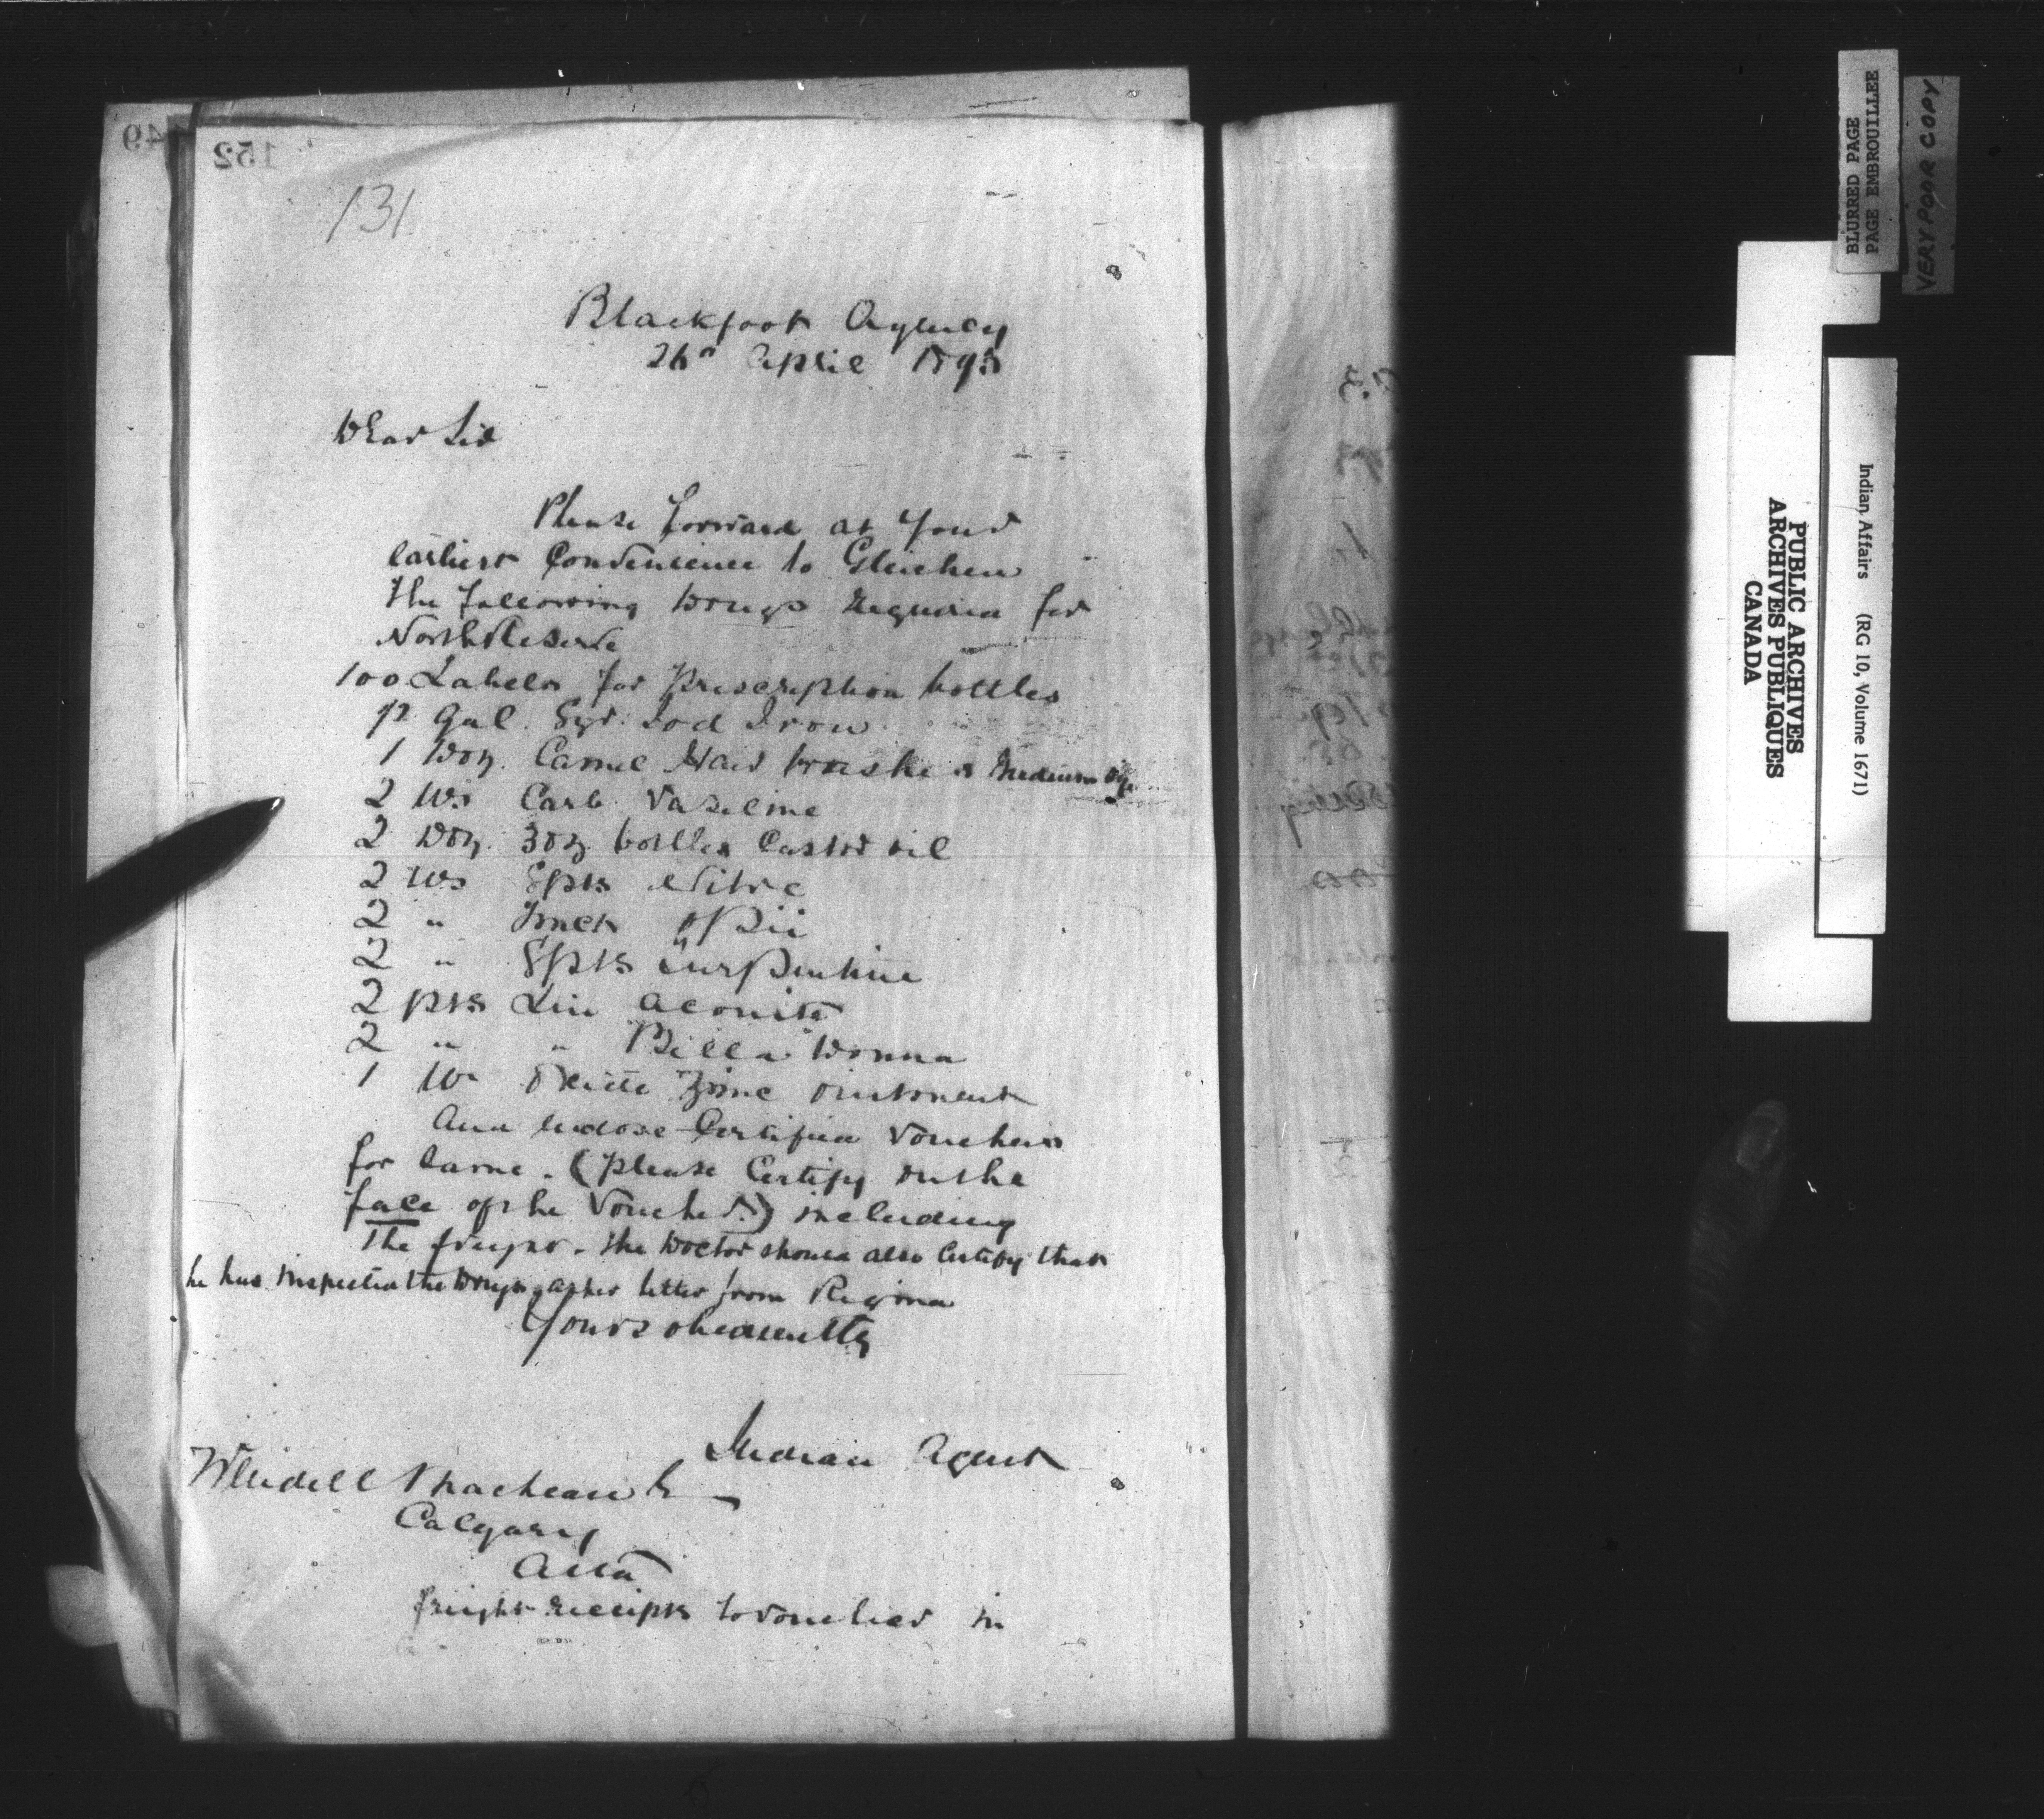 152
131
Blackfoot Agency
26th April 1895
Dear Sir
Please forward at your
earliest Convenience to Gleichen
the following Drugs required for
North Reserve
100 Labels for Prescription bottles
1/2 Gal. Syr. Iod Iron
1 Doz. Camel Hair brushes Medium size
2 lbs Carb. Vaseline
2 Doz. 3 oz bottles Castor oil
2 lbs Spts Nitre
2 " Tinct Opii
2 " Spts Turpentine
2 pts Lin Aconite
2 " " Bella Donna
1 lb Oxide Zinc Ointment
And enclose Certified Vouchers
for same. (Please Certify on the
face of the Voucher.) including
The freight. The Doctor should also Certify that
he has inspected the Drugs as per letter from Regina
Yours obediently
Indian Agent
Wendell Maclean
Calgary
Alta
freight receipts to voucher in
BLURRED PAGE
PAGE EMBROUILLEE
VERY POOR COPY
PUBLIC ARCHIVES
ARCHIVES PUBLIQUES
CANADA
Indian Affairs (RG 10, Volume 1671)